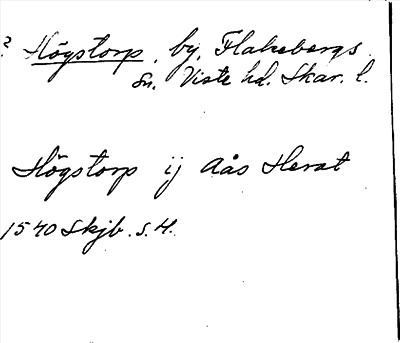 ? Högstorp, by, Flakebergs
sn. Viste hd. Skar. l.
Högstorp ij Aås Herat
1540 Skjb. s. 4.